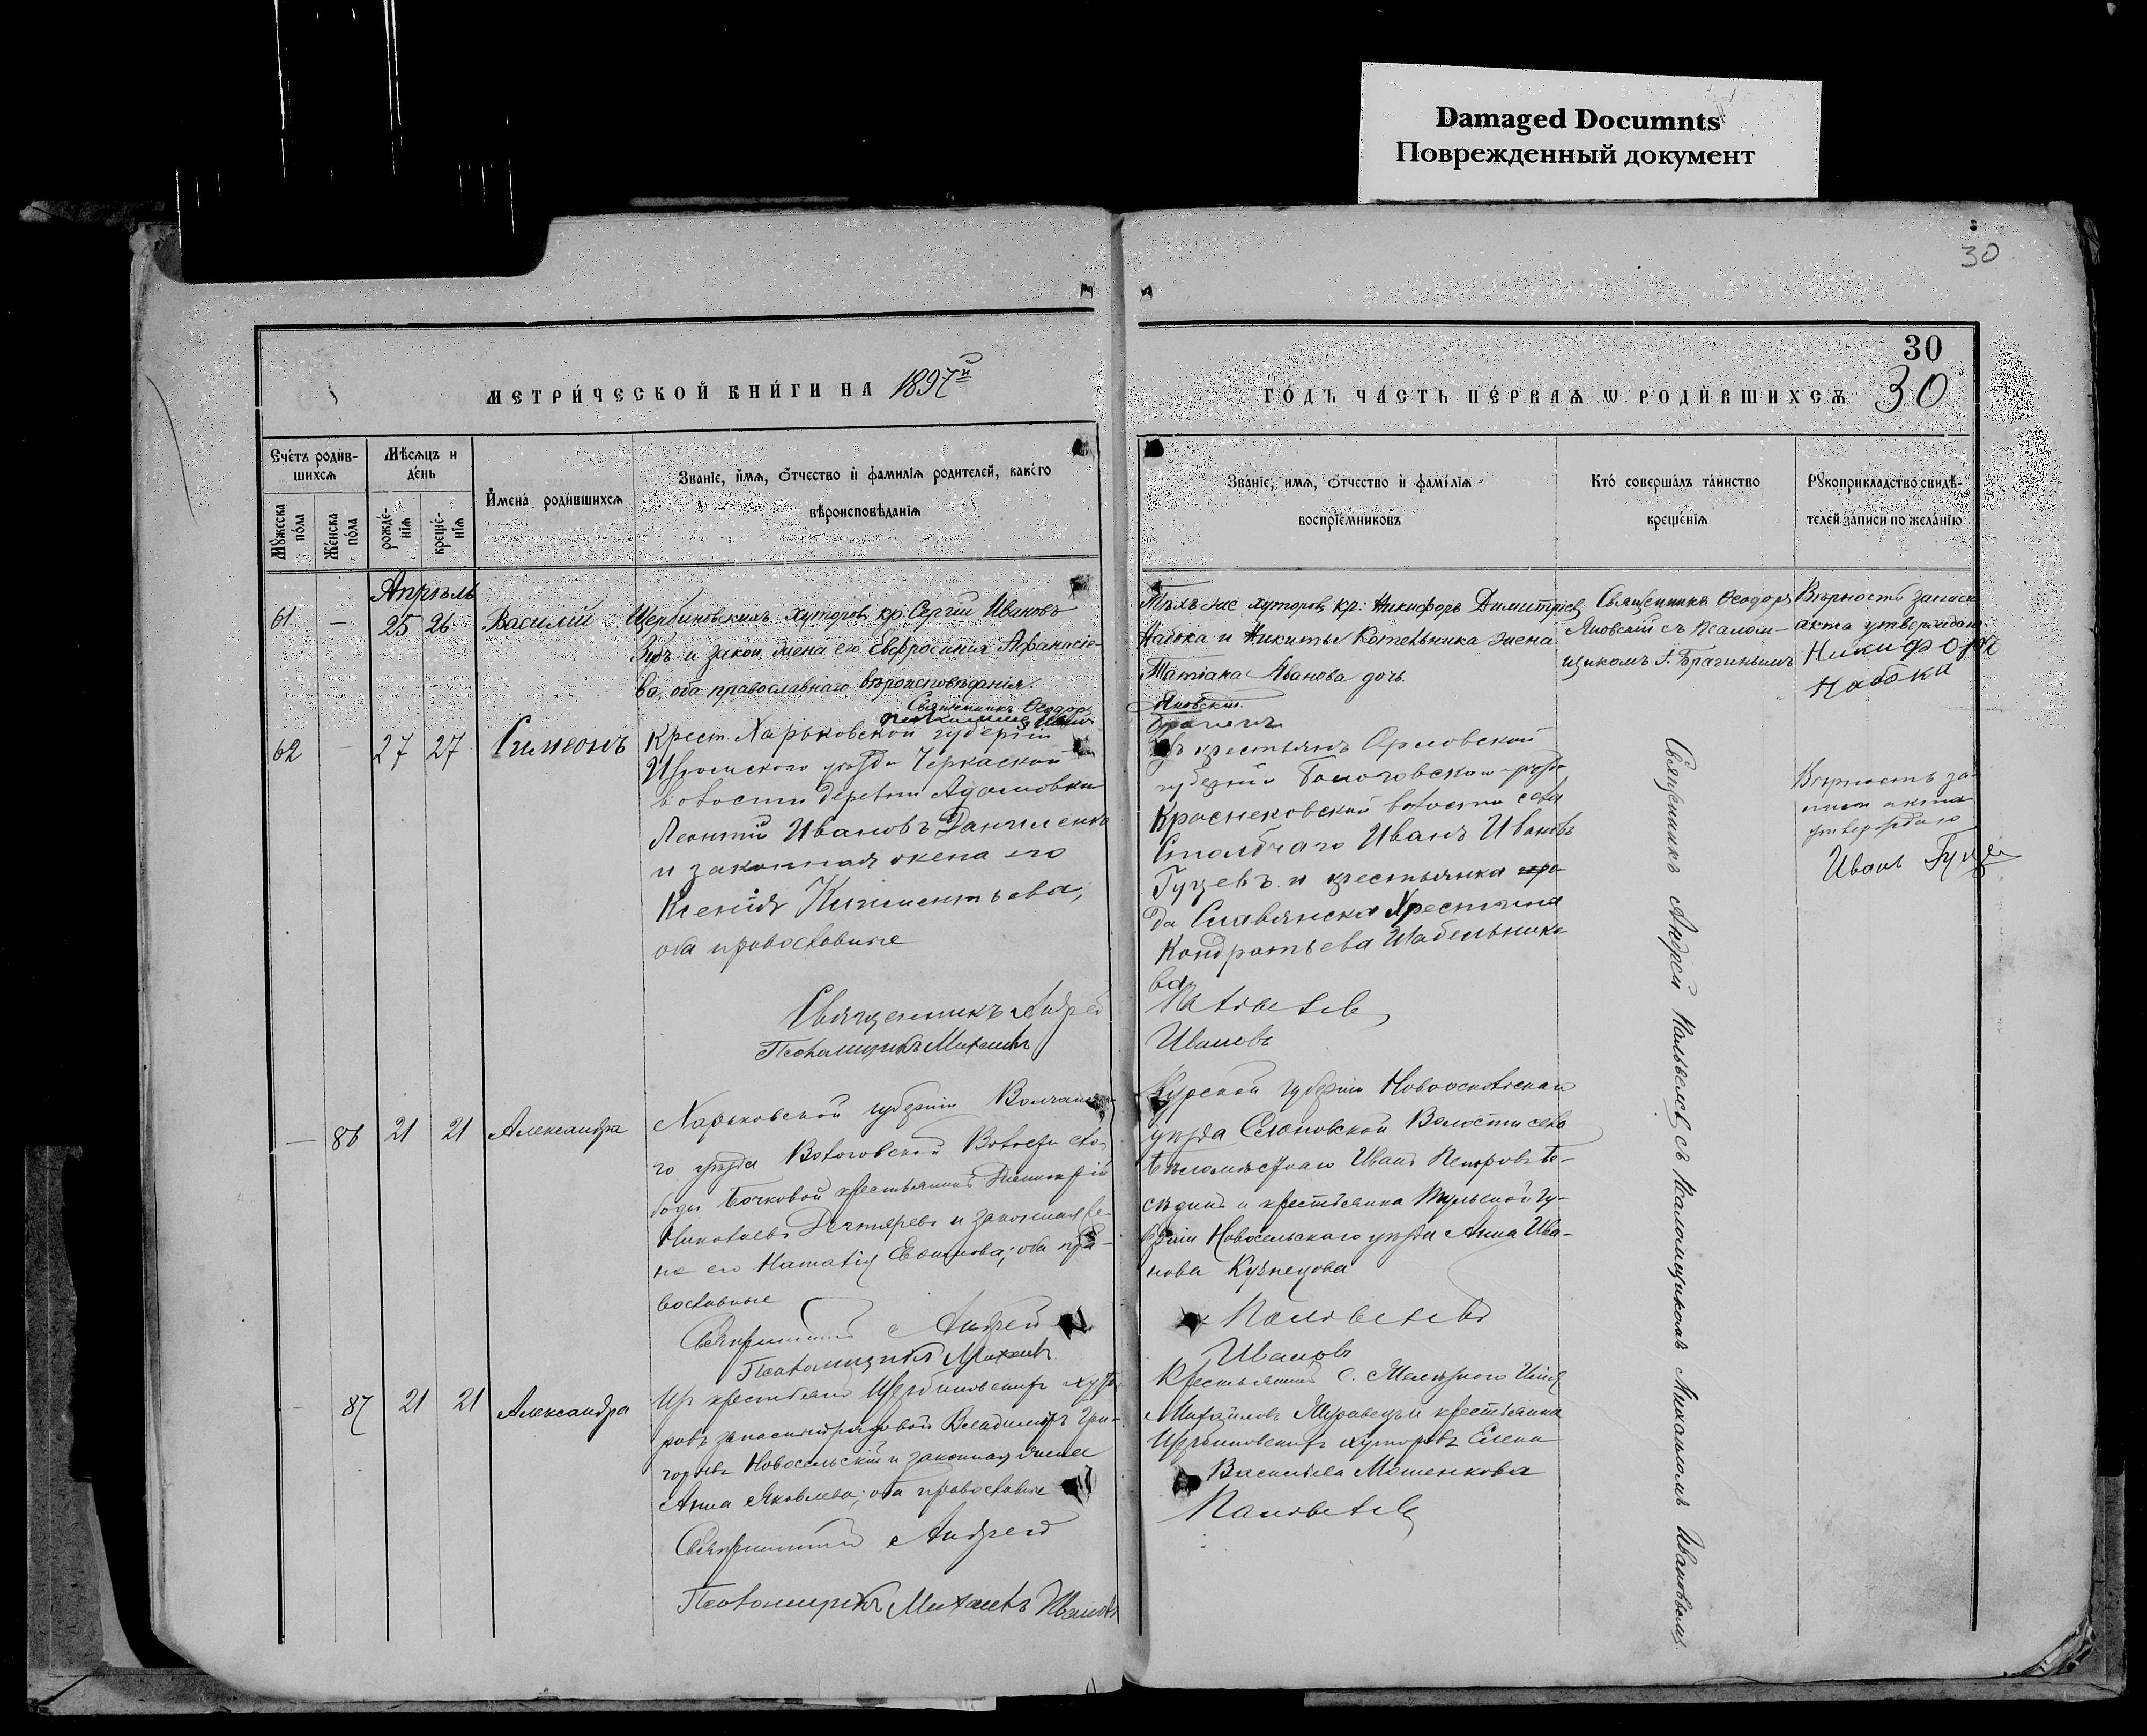 Damaged Documnts
Поврежденный документ
30
30
МЕТРИ́ЧЕСКОЙ КНИ́ГИ НА 1897й
ГО́ДЪ ЧА́СТЬ ПЕ́РВАѦ Ѡ РОДИ́ВШИХСѦ 30
Сче́тъ роди́в-
шихсѧ
Мꙋжеска по́ла
Же́нска по́ла
Мѣсѧцъ и
де́нь
рожде́-
нїѧ
креще́-
нїѧ
И҆мена́ роди́вшихсѧ
Званїе, и҆мѧ, ѻ҆тчество и҆ фамилїѧ родителей, како́го
вѣроисповѣданїѧ
Зва́нїе, имѧ, ѻтчество и҆ фамі́лїѧ
воспрїе́мниковъ
Кто̀ соверша́лъ та́инство
креще́нїѧ
Рꙋкоприкладство свидѣ-
телей за́писи по жела́нїю
Апрѣль
61 — 25 26 Василій
Щербиновскихъ хуторовъ кр: Сергій Ивановъ
Зубъ и закон. жена его Евфросинія Афанасіе-
ва, оба православнаго вѣроисповѣданія.
Священникъ Ѳеодоръ
Яновскій.
Тѣхъ же хуторовъ кр: Никифоръ Димитріев
Набока и Никиты Котельника жена
Татіана Иванова дочь.
Священникъ Ѳеодоръ
Яновскій съ псалом-
щикомъ І. Брагинымъ
Вѣрность записи
акта утверждаю
Никифоръ
Набока
62 — 27 27 Симеонъ
Крест. Харьковской губерніи
Изюмскаго уѣзда Черкаской
волости деревни Адамовки
Леонтій Ивановъ Данченко
и законная жена его
Ксенія Климентьева,
оба православные
Священникъ Андрей
Псаломщикъ Михаилъ
Изъ крестьянъ Орловской
губерніи
волости села
Иванъ Ивановъ
Гузевъ и крестьянка го-
да Славянска Христина
Кондратьева Шабельнико-
ва
Ивановъ
Вѣрность за-
писи акта
утверждаю
Иванъ
Священникъ Андрей съ Псаломщикомъ Михаиломъ Ивановымъ.
— 86 21 21 Александра
Харьковской губерніи Волчанска-
го уѣзда волости сло-
боды Бочковой крестьянинъ Димитрій
Николаевъ Дегтяревъ и законная же-
на его Наталія Евфимова; оба пра-
вославные
Священникъ Андрей
Псаломщикъ Михаилъ
Курской губерніи Новооскольскаго
уѣзда волости села
Иванъ Петровъ Бе-
сѣдинъ и крестьянка Тульской гу-
берніи Новосильскаго уѣзда Анна Ива-
нова Кузнецова
Ивановъ
87 21 21 Александра
Изъ крестьянъ Щербиновскихъ хуто-
ровъ запасный рядовой Владимиръ Гри-
горьевъ Новосельскій и законная жена
Анна Яковлева; оба православные
Священникъ Андрей
Псаломщикъ Михаилъ Ивановъ
Крестьянинъ с.
Михайловъ и крестьянка
Щербиновскихъ хуторовъ Елена
Васильева Мошенкова